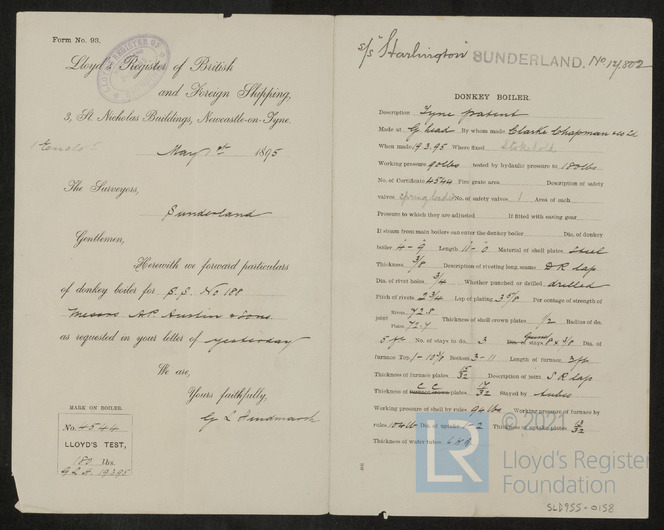 Form No. 93.
Lloyd's Register of British
and Foreign Shipping,
3, St. Nicholas Buildings, Newcastle-on-Tyne.
1 Enclo
May 1st 1895
The Surveyors,
Sunderland
Gentlemen,
Herewith we forward particulars
of donkey boiler for S.S. No 188
Messrs A.P. Austin & Sons
as requested in your letter of yesterday
We are,
Yours faithfully,
G L Hindmarsh
MARK ON BOILER.
No. 4544
LLOYD'S TEST,
180 lbs.
G L H. 19 3 95
s/s "Harlington" SUNDERLAND. No 12,802
DONKEY BOILER.
Description Tyne patent
Made at G head By whom made Clarke Chapman & Co Ld
When made 19.3.95 Where fixed Stokehold
Working pressure 90 lbs tested by hydraulic pressure to 180 lbs
No. of Certificate 4544 Fire grate area Description of safety
valves Spring loaded No. of safety valves 1 Area of each
Pressure to which they are adjusted If fitted with easing gear
If steam from main boilers can enter the donkey boiler Dia. of donkey
boiler 4-9 Length 11-0 Material of shell plates Steel
Thickness 3/8 Description of riveting long. seams D R Lap
Dia. of rivet holes 3/4 Whether punched or drilled drilled
Pitch of rivets 2 3/4 Lap of plating 3 5/8 Per centage of strength of
joint Rivets 72.8 Plates 72.7 Thickness of shell crown plates 1/2 Radius of do.
5 ft No. of stays to do. 3 stays 8 x 3/8 Dia. of
furnace Top Bottom 3-11 Length of furnace 3 ft
Thickness of furnace plates 15/32 Description of joint S R Lap
Thickness of furnace crown plates C C 17/32 Stayed by tubes
Working pressure of shell by rules 94 lbs Working pressure of furnace by
rules 104 lb Dia. of uptake 1-2 Thickness of uptake plates 13/32
Thickness of water tubes
© 2021
LR
Lloyd's Register
Foundation
SLD955-0158